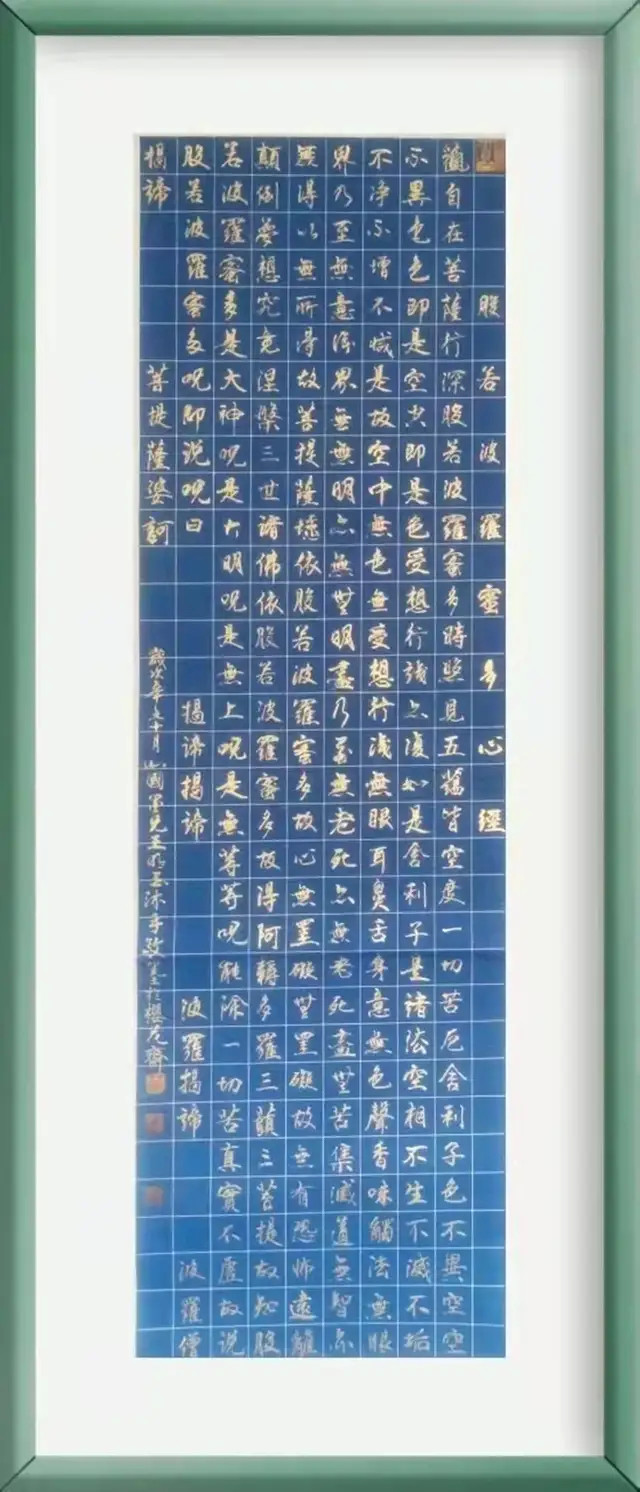 般若波羅蜜多心經
觀自在菩薩行深般若波羅蜜多時照見五蘊皆空度一切苦厄舍利子色不異空空
不異色色即是空空即是色受想行識亦復如是舍利子是諸法空相不生不滅不垢
不净不增不減是故空中無色無受想行識無眼耳鼻舌身意無色聲香味觸法無眼
界乃至無意識界無無明亦無無明盡乃至無老死亦無老死盡無苦集滅道無智亦
無得以無所得故菩提薩埵依般若波羅蜜多故心無罣礙無罣礙故無有恐怖遠離
顛倒夢想究竟涅槃三世諸佛依般若波羅蜜多故得阿耨多羅三藐三菩提故知般
若波羅蜜多是大神呪是大明呪是無上呪是無等等呪能除一切苦真實不虛故説
般若波羅蜜多呪即説呪曰 揭諦揭諦 波羅揭諦 波羅僧
揭諦 菩提薩婆訶
歲次辛丑十月 國 沐手敬 於櫻花齋